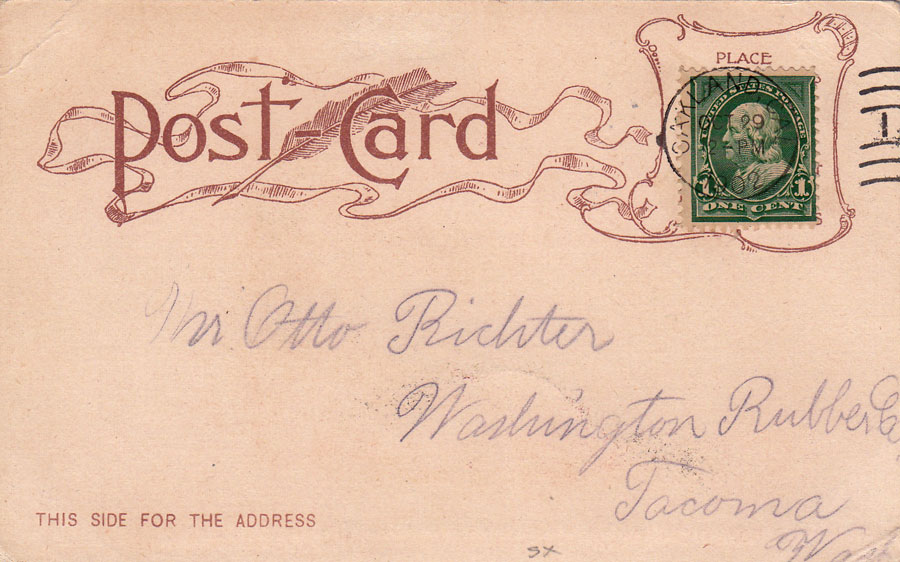 Post-Card
PLACE
OAKLAND
OCT 29
2-PM
1902
UNITED STATES POSTAGE
1 1
ONE CENT
1
Mr Otto Richter
Washington Rubber Co
Tacoma
Wash
THIS SIDE FOR THE ADDRESS
SX